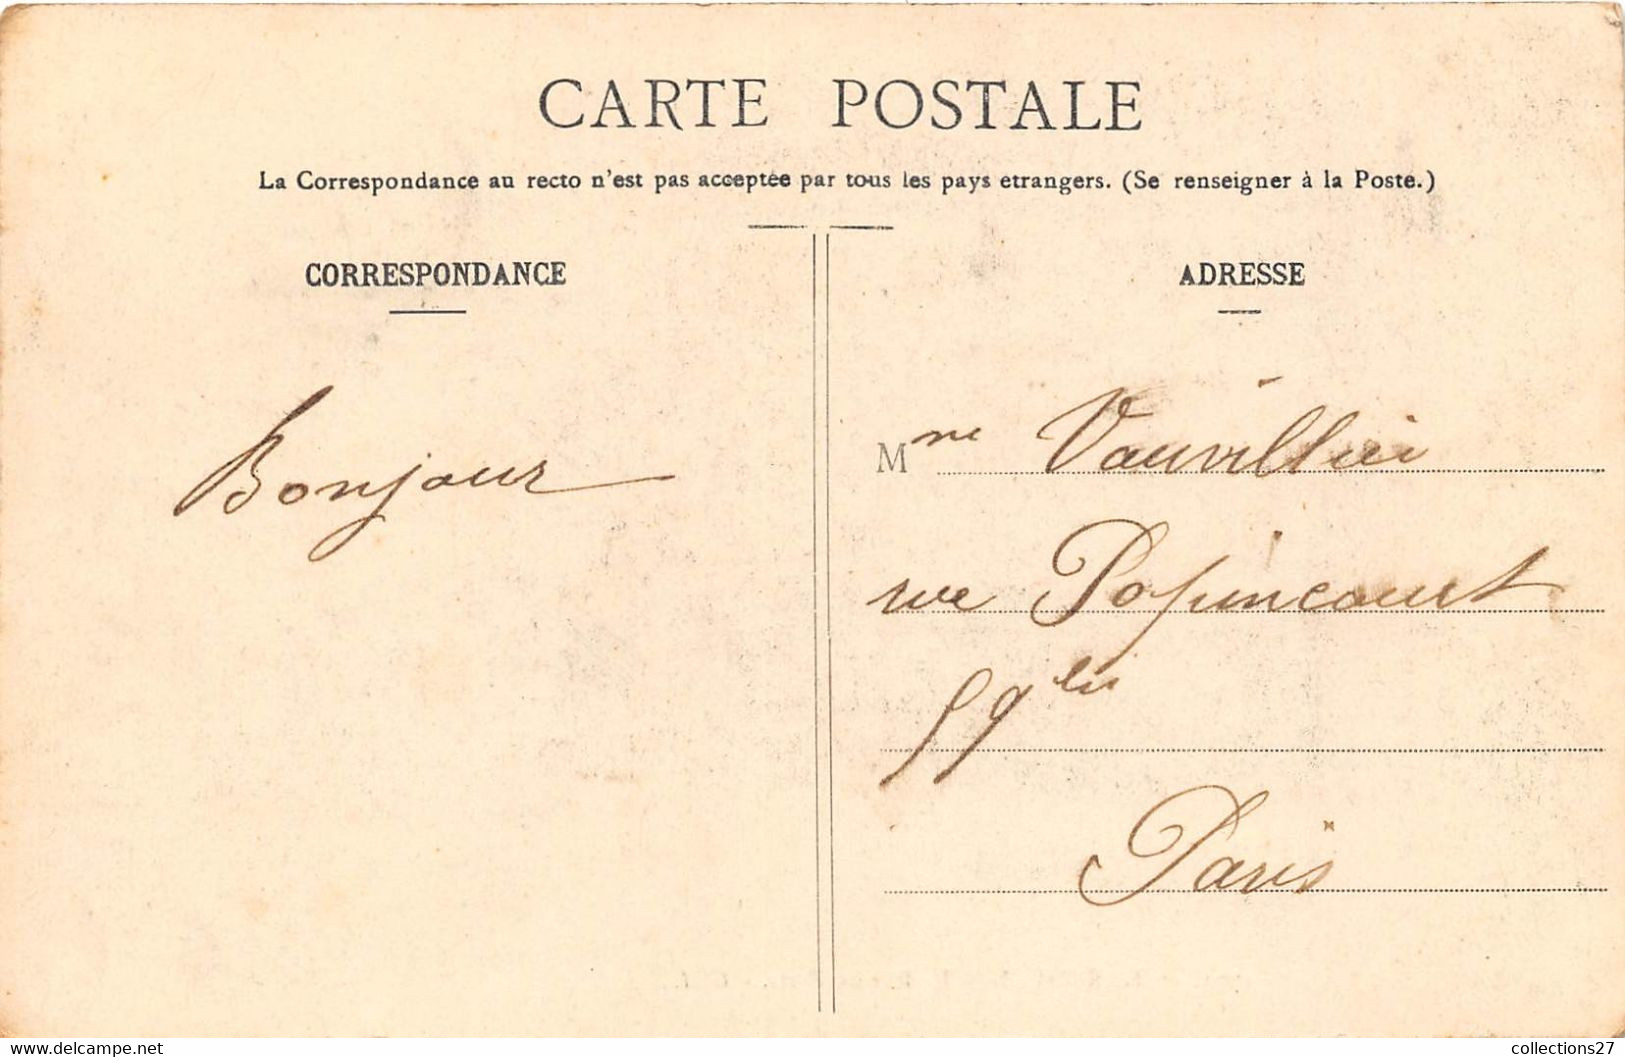 CARTE POSTALE
La Correspondance au recto n'est pas acceptée par tous les pays etrangers. (Se renseigner à la Poste.)
CORRESPONDANCE
Bonjour
ADRESSE
Mme Vauvillier
rue Popincourt
59 bis
Paris
www.delcampe.net
collections27